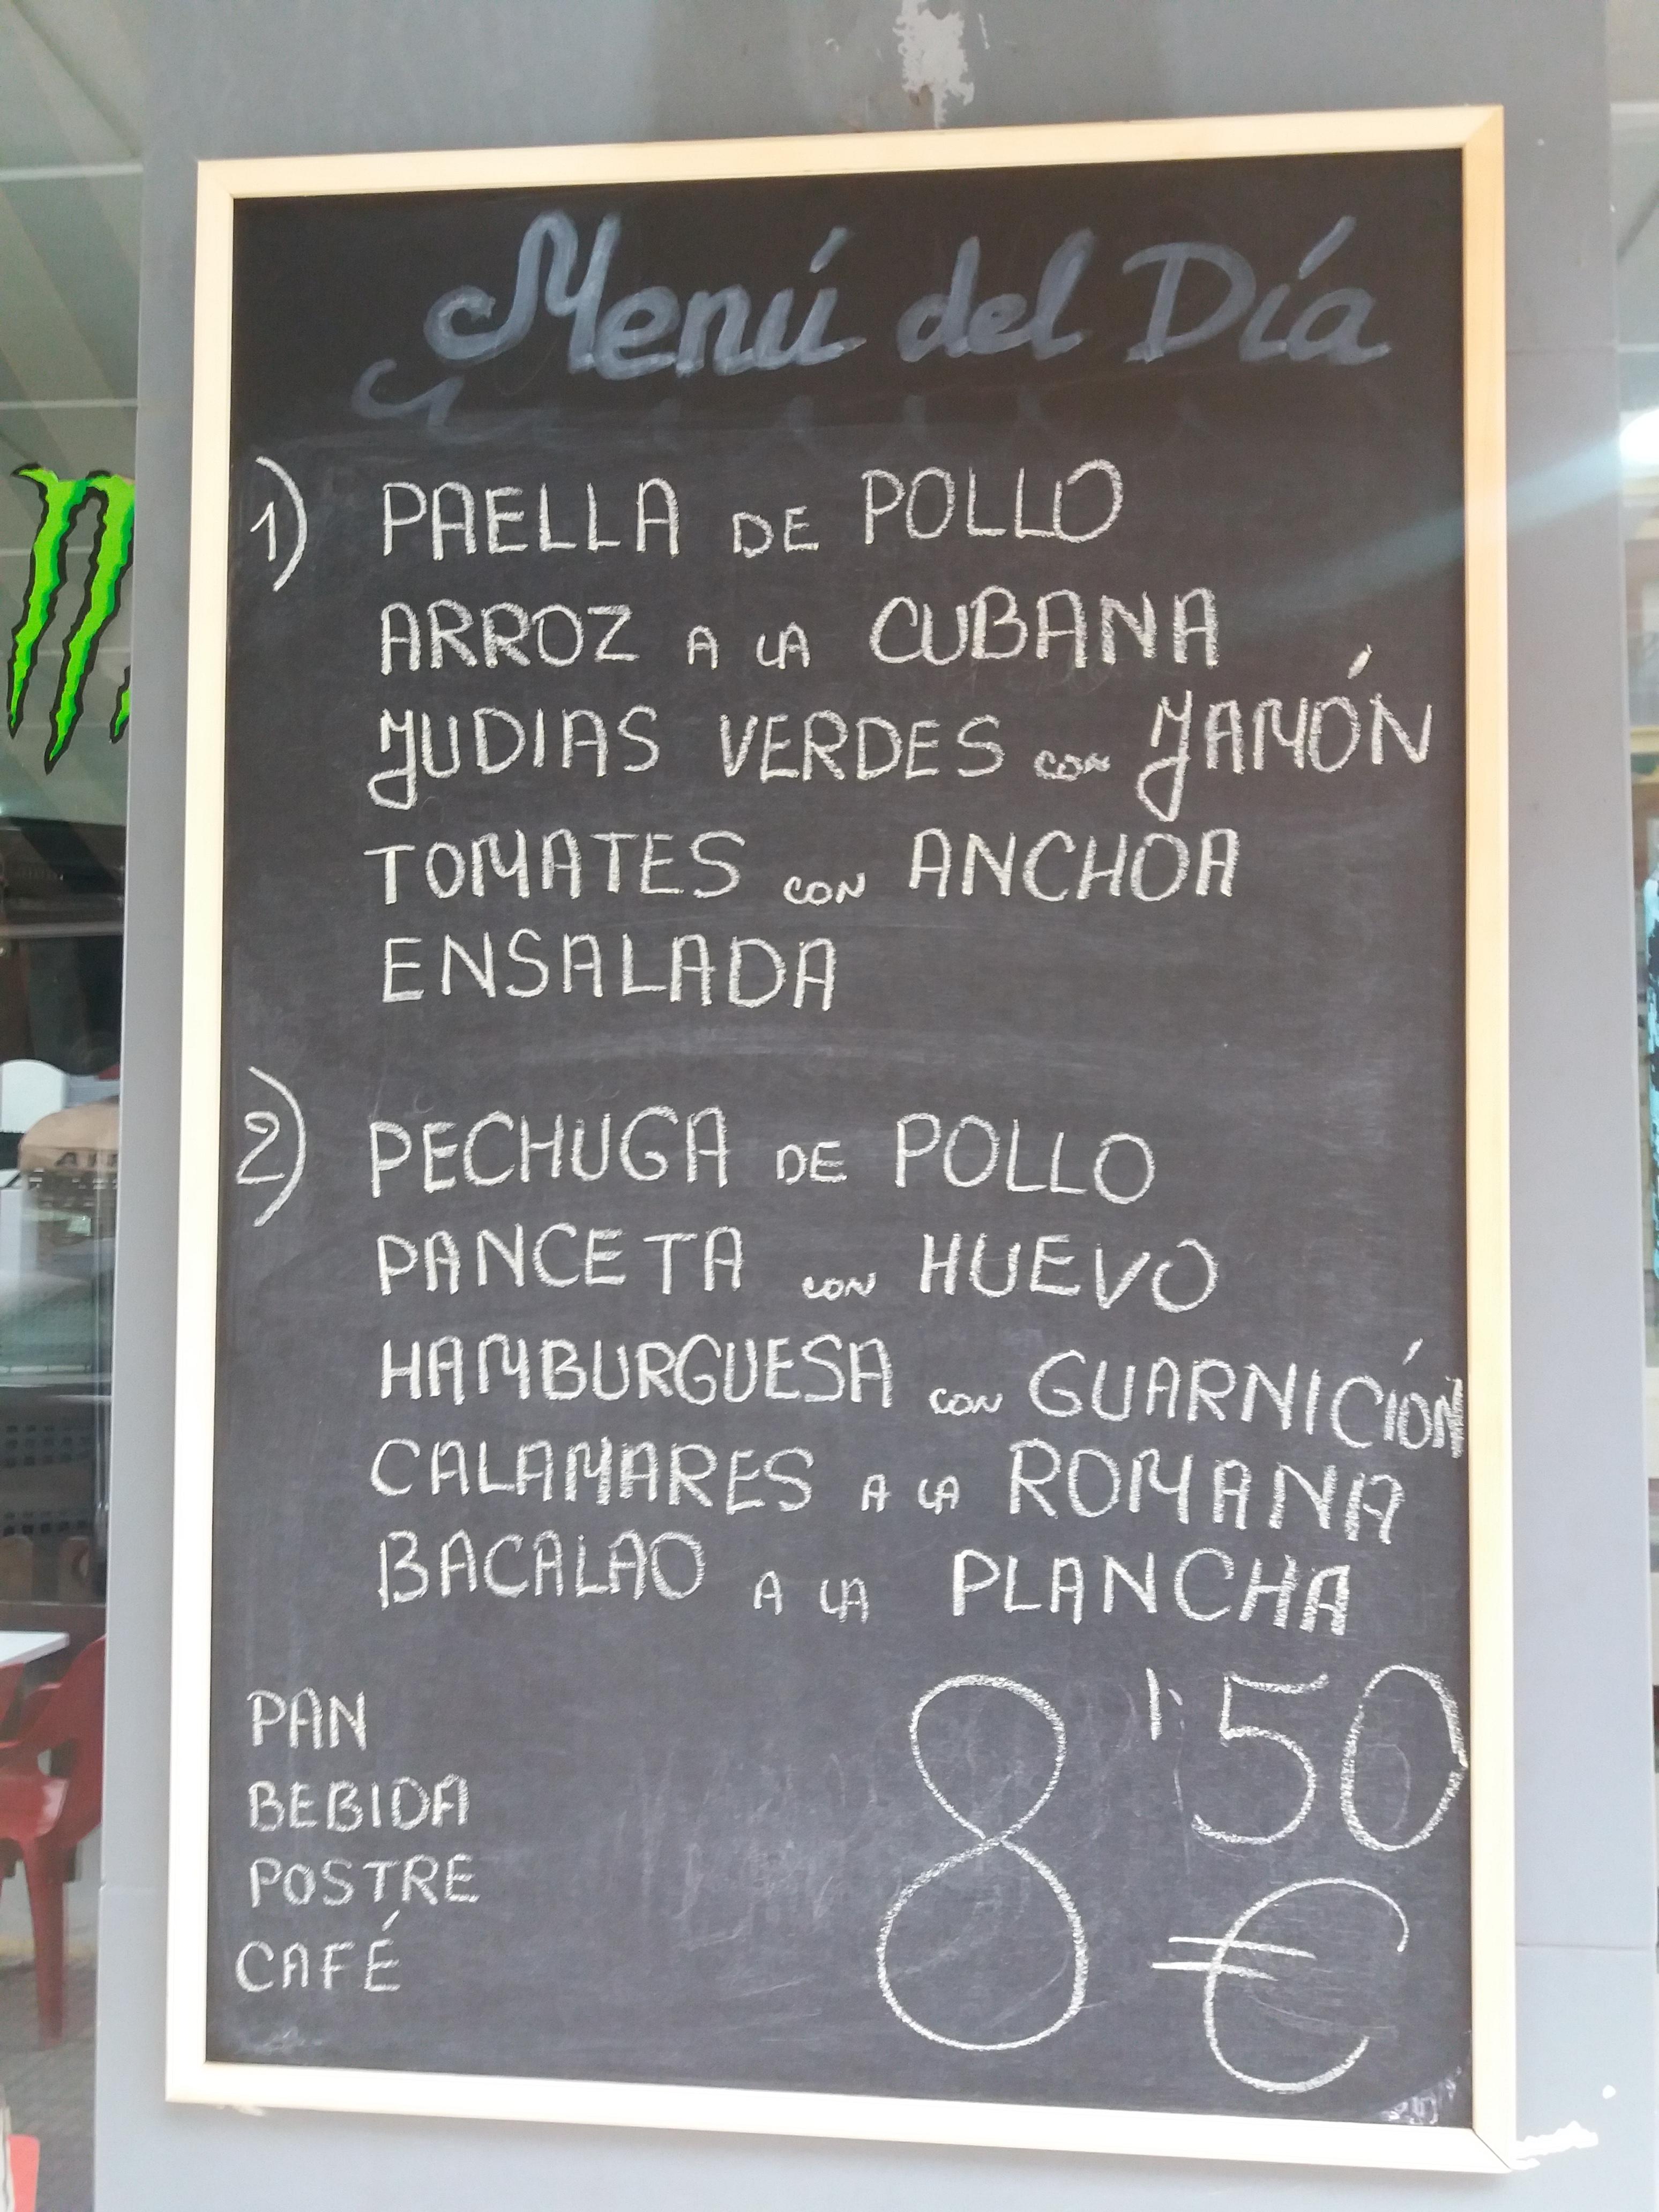 Menú del Día
1) PAELLA DE POLLO
ARROZ A LA CUBANA
JUDIAS VERDES CON JAMÓN
TOMATES CON ANCHOA
ENSALADA
2) PECHUGA DE POLLO
PANCETA CON HUEVO
HAMBURGUESA CON GUARNICIÓN
CALAMARES A LA ROMANA
BACALAO A LA PLANCHA
PAN
BEBIDA
POSTRE
CAFÉ
8'50
€